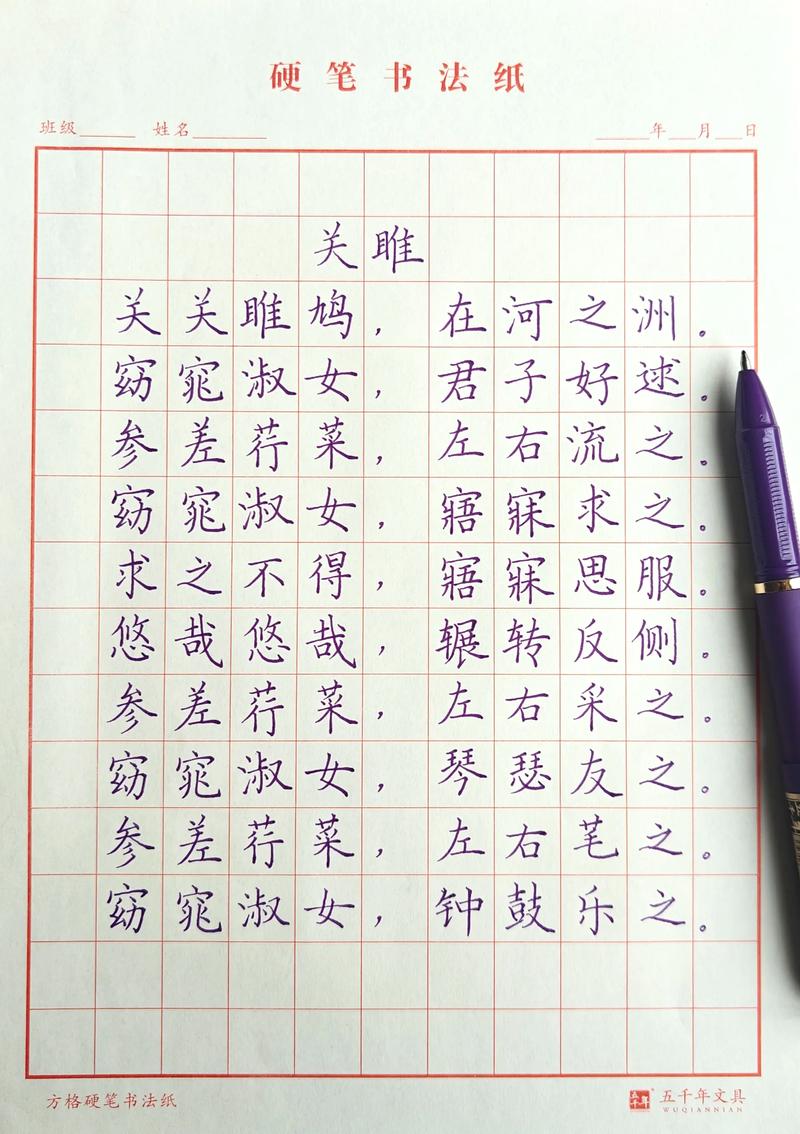 硬笔书法纸
班级 姓名 年 月 日
关雎
关关雎鸠，在河之洲。
窈窕淑女，君子好逑。
参差荇菜，左右流之。
窈窕淑女，寤寐求之。
求之不得，寤寐思服。
悠哉悠哉，辗转反侧。
参差荇菜，左右采之。
窈窕淑女，琴瑟友之。
参差荇菜，左右芼之。
窈窕淑女，钟鼓乐之。
方格硬笔书法纸 五千年 五千年文具
WUQIANNIAN